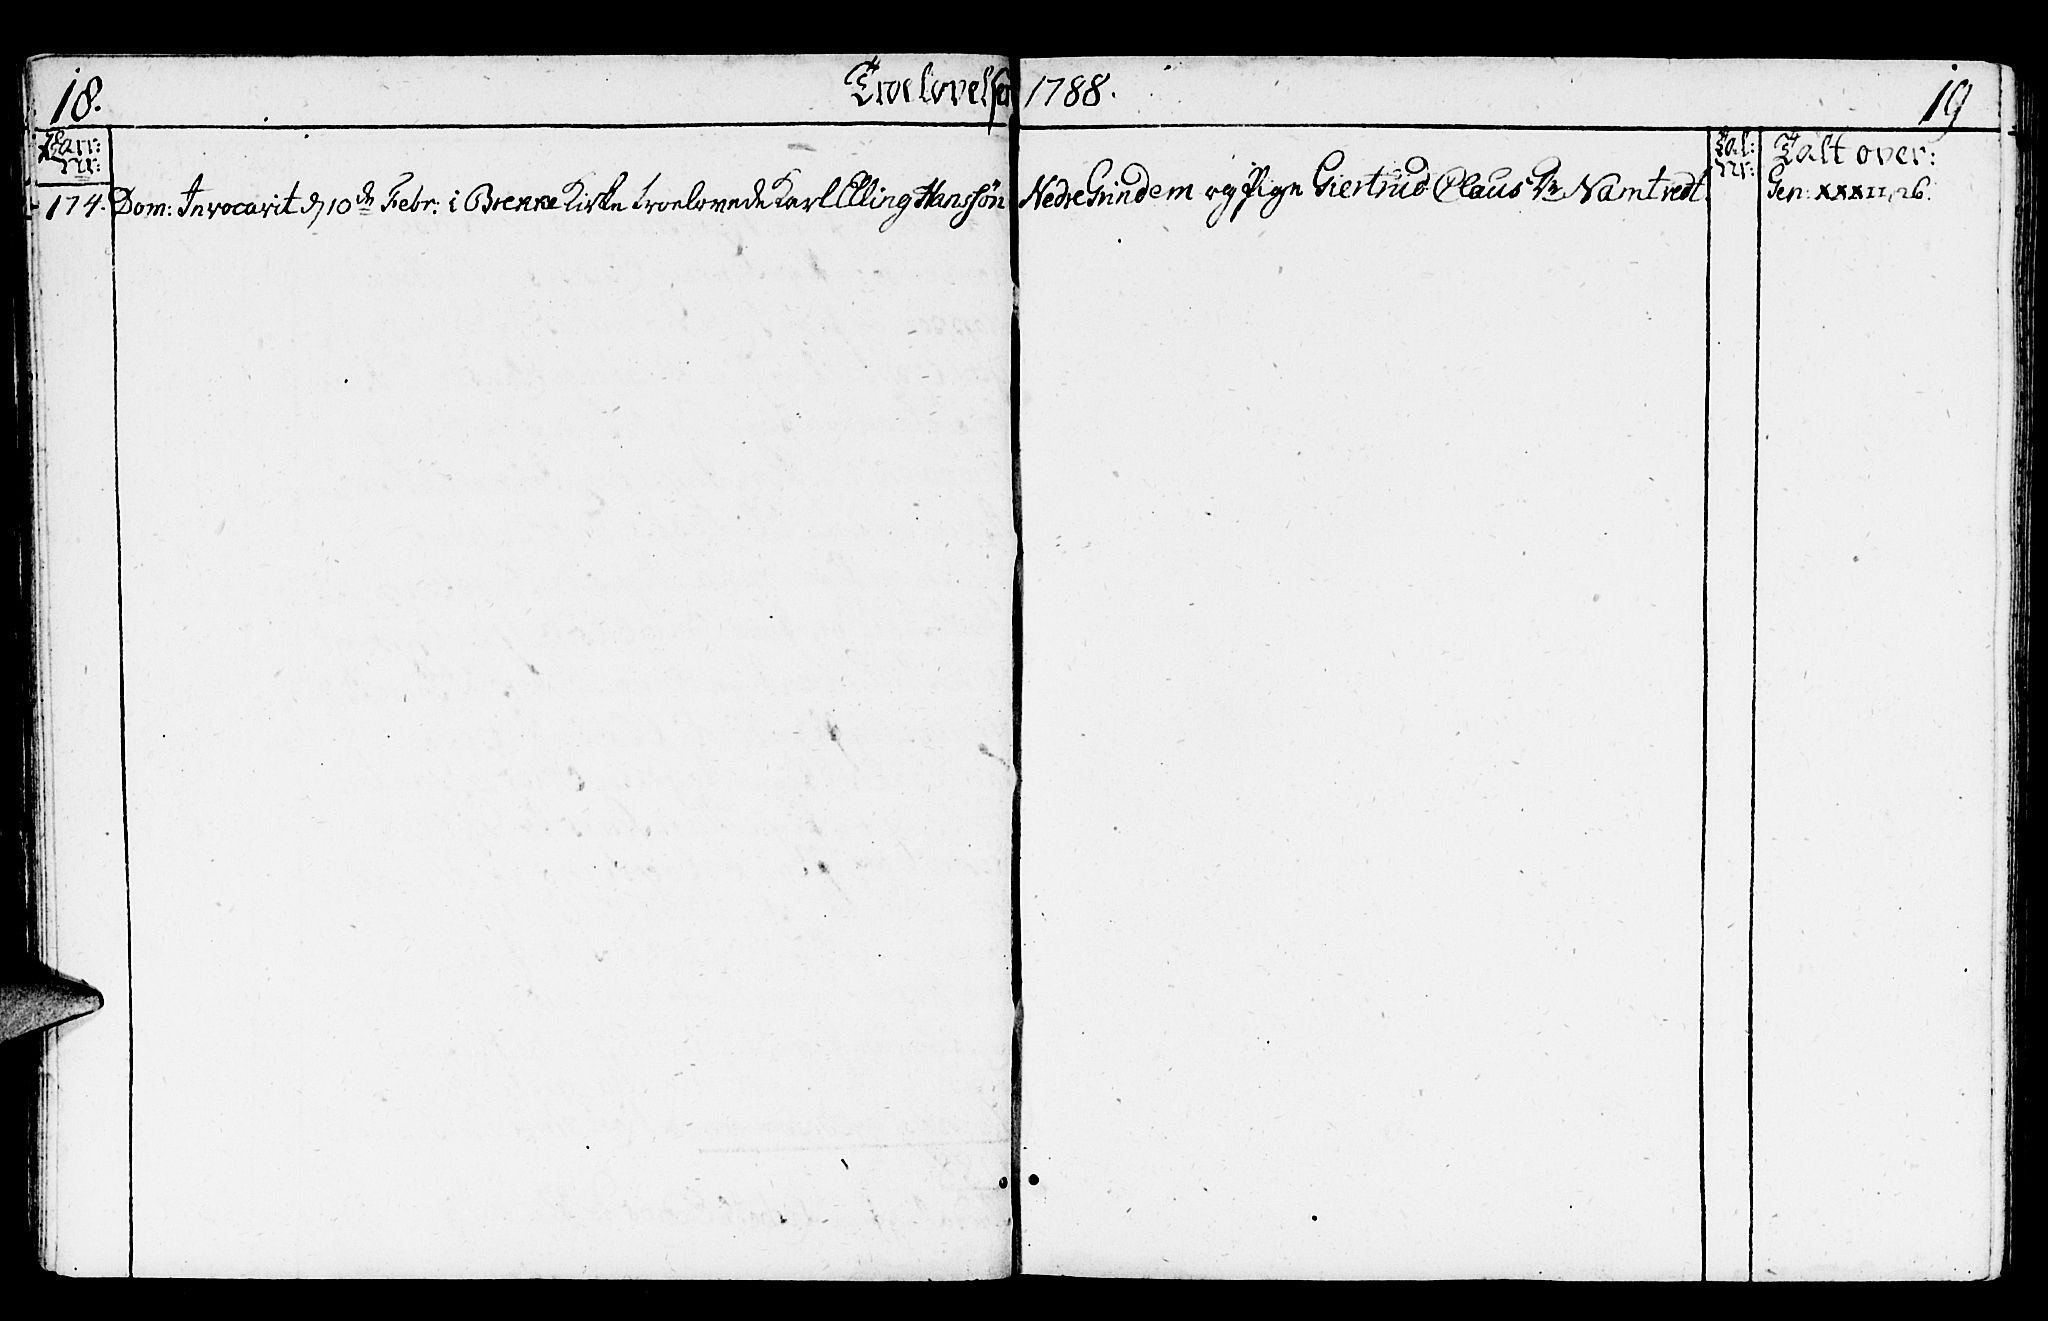 18. Troelovelser 1788. 19
Parr: Nr:
Tal: Nr: Talt over:
174. Dom: Invocavit d 10de Febr: i Brekke Kirke troelovede Karl Elling Hanssön Nedre Grindem og Pige Giertrud Claus Dr Namtvedt. Gen: XXXII, 26.